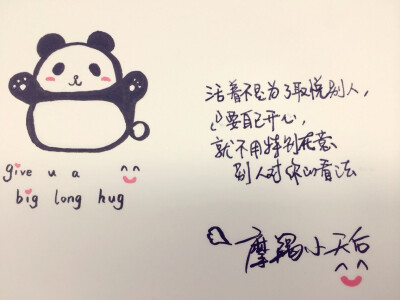 give u a
big long hug
活着不是为了取悦别人，
只要自己开心，
就不用特别在意
别人对你的看法
摩羯小天后